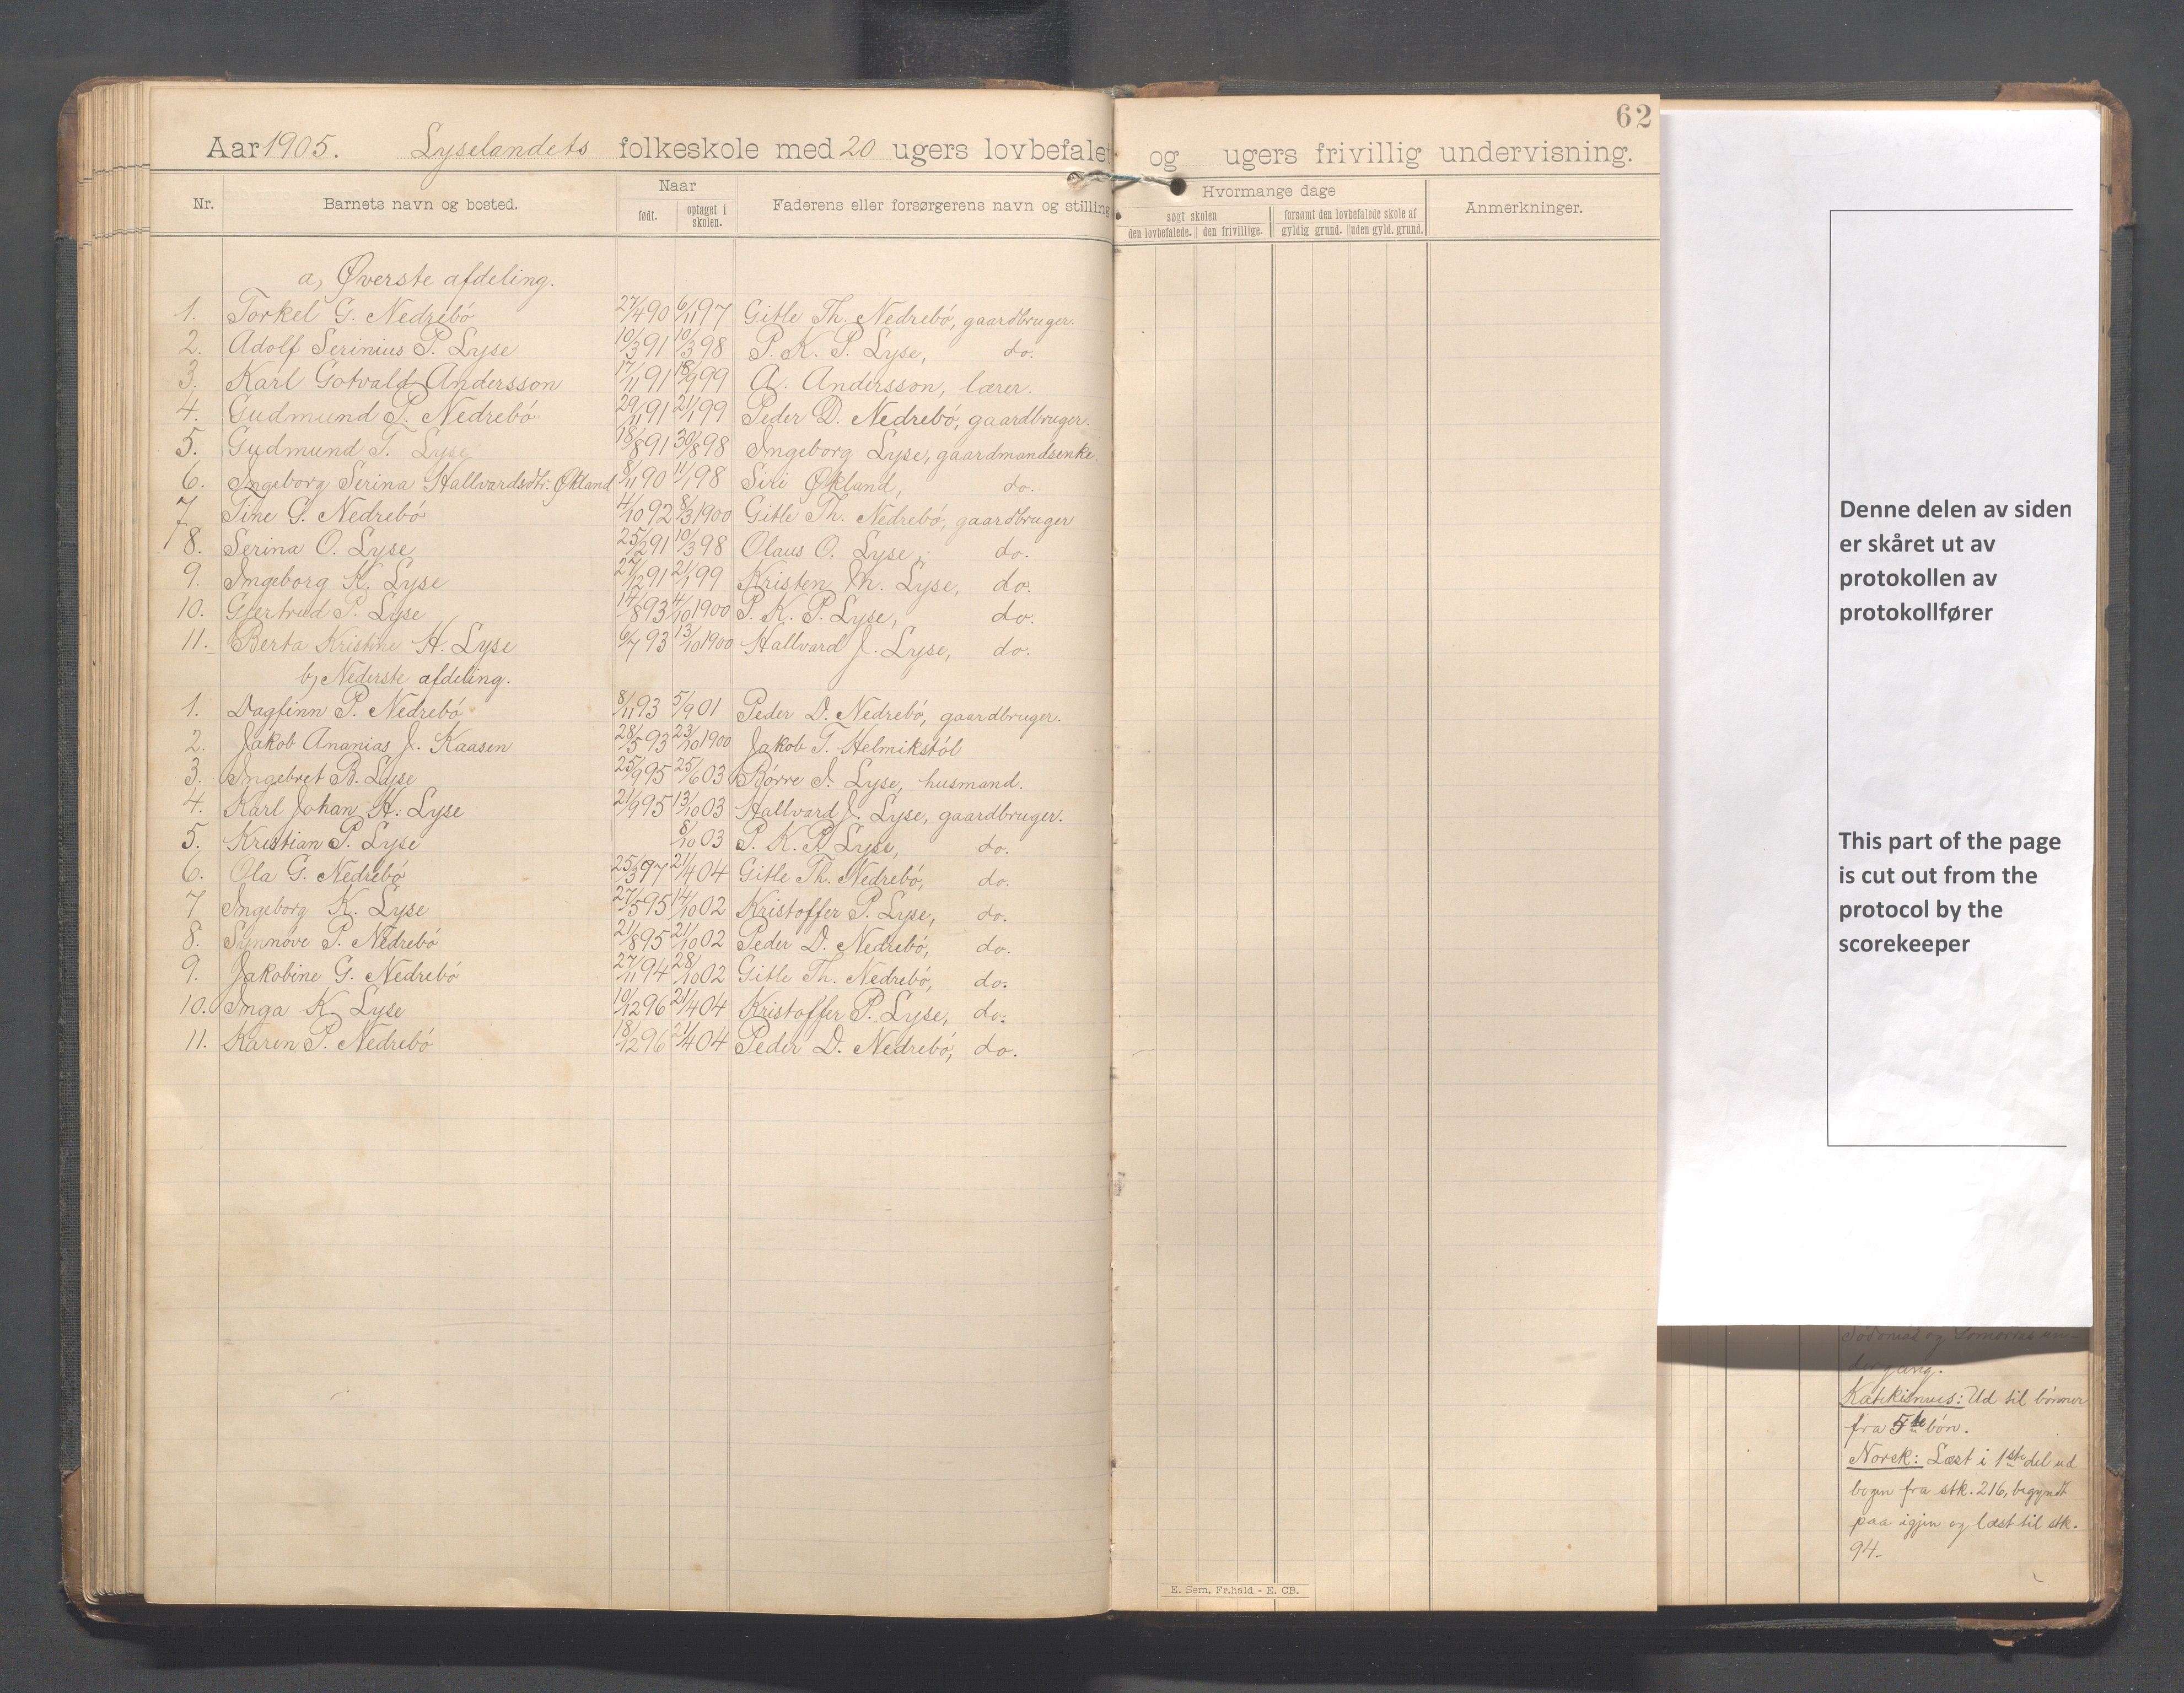 62
Aar 1905. Lyselandets folkeskole med 20 ugers lovbefalet og ugers frivillig undervisning.
Nr. Barnets navn og bosted. Naar født. optaget i skolen. Faderens eller forsørgerens navn og stilling Hvormange dage søgt skolen den lovbefalede. den frivillige. forsømt den lovbefalede skole af gyldig grund. uden gyld. grund. Anmerkninger.
a, Øverste afdeling.
1. Torkel G. Nedrebó 27/4 90 6/11 97 Gitle Th. Nedrebó, gaardbruger.
2. Adolf Serinius P. Lyse 10/3 91 10/3 98 P. K. P. Lyse, do.
3. Karl Gotvald Andersson 17/11 91 18/9 99 A. Andersson, lærer.
4. Gudmund P. Nedrebó 29/11 91 21/1 99 Peder D. Nedrebó, gaardbruger.
5. Gudmund T. Lyse 18/8 91 30/8 98 Ingeborg Lyse, gaardmandsenke.
6. Ingeborg Serina Hallvardsdtr. Økland 8/11 90 11/1 98 Siri Økland, do.
7 Tine G. Nedrebó 4/10 92 8/3 1900 Gitle Th. Nedrebó, gaardbruger
8. Serina O. Lyse 25/2 91 10/3 98 Olaus O. Lyse, do.
9. Ingeborg K. Lyse 27/12 91 21/1 99 Kristen Th. Lyse, do.
10. Gjertrud P. Lyse 17/8 93 4/10 1900 P. K. P. Lyse, do.
11. Berta Kristine H. Lyse 6/7 93 13/10 1900 Hallvard J. Lyse, do.
b, Nederste afdeling.
1. Dagfinn P. Nedrebó 8/11 93 5/9 01 Peder D. Nedrebó, gaardbruger.
2. Jakob Ananias J. Kaasen 28/5 93 23/10 1900 Jakob T. Helmikstól
3. Ingebret B. Lyse 25/9 95 25/6 03 Børre I. Lyse, husmand.
4. Karl Johan H. Lyse 21/9 95 13/10 03 Hallvard J. Lyse, gaardbruger.
5. Kristian P. Lyse 8/10 03 P. K. P. Lyse, do.
6. Ola G. Nedrebó 25/3 97 21/4 04 Gitle Th. Nedrebó, do.
7 Ingeborg K. Lyse 27/5 95 14/10 02 Kristoffer P. Lyse, do.
8. Synnóve P. Nedrebó 21/8 95 21/10 02 Peder D. Nedrebó, do.
9. Jakobine G. Nedrebó 27/11 94 28/10 02 Gitle Th. Nedrebó, do.
10. Inga K. Lyse 10/12 96 21/4 04 Kristoffer P. Lyse, do.
11. Karen P. Nedrebó 18/12 96 21/4 04 Peder D. Nedrebó, do.
E. Sem, Fr.hald - E. CB.
Denne delen av siden
er skåret ut av
protokollen av
protokollfører
This part of the page
is cut out from the
protocol by the
scorekeeper
Sodomas og Gomorras un-
dergang.
Katekismus: Ud til bónner
fra 5te bón.
Norsk: Læst i 1ste del ud
bogen fra stk. 216, begyndt
paa igjen og læst til stk.
94.